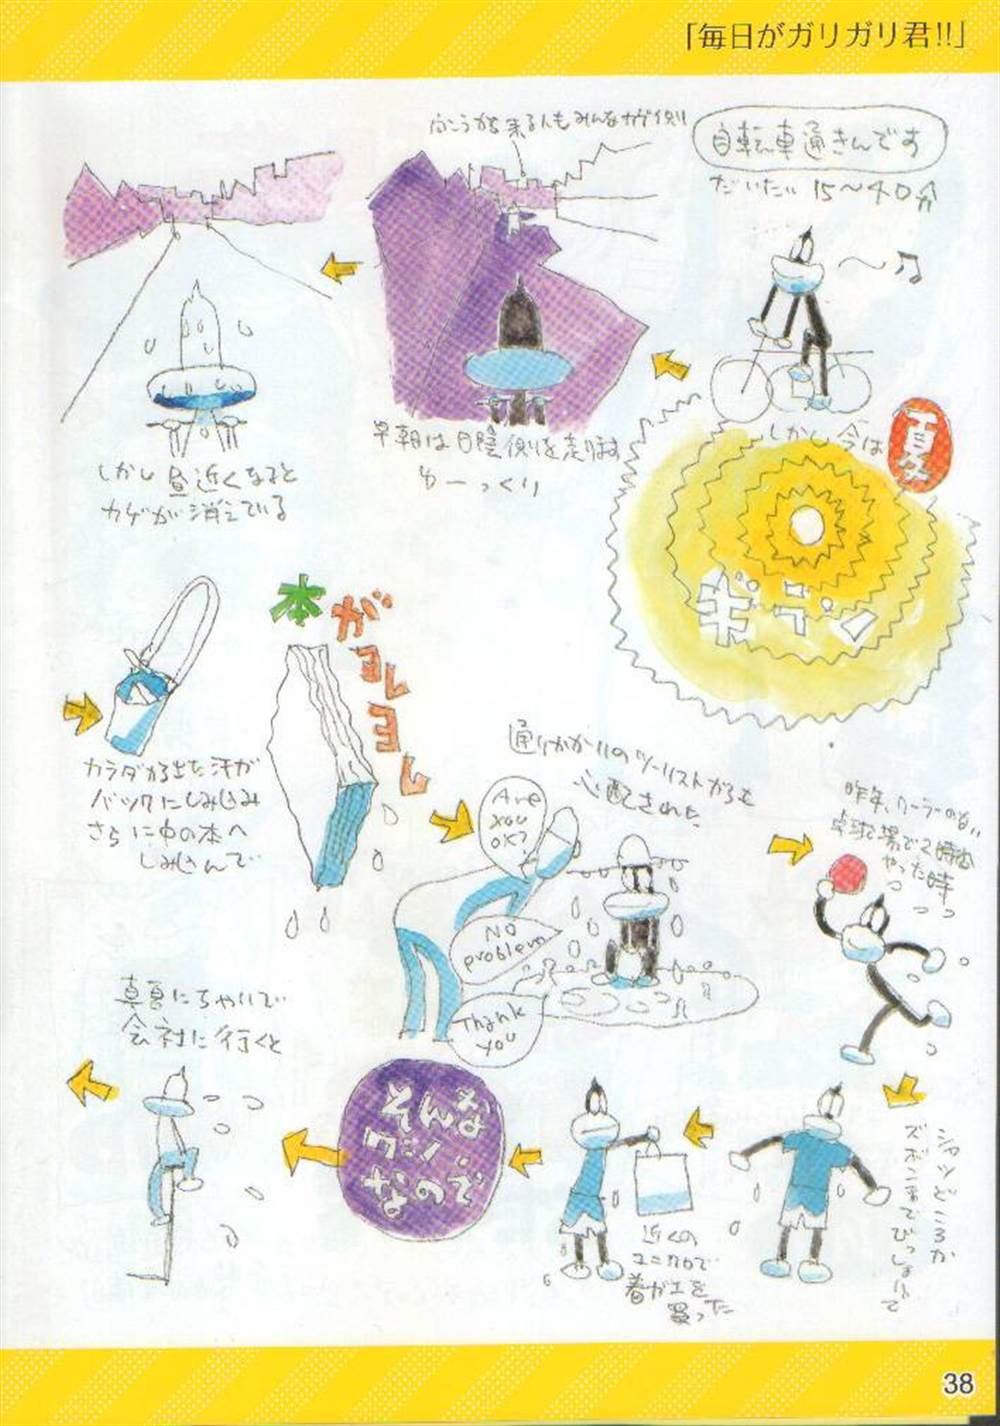 「毎日がガリガリ君!!」
自転車通きんです
だいたい 15〜40分
しかし今は
夏
ギラン
向こうから来る人もみんなカゲ側
早朝は日陰側を走ります
ゆーっくり
しかし昼近くなると
カゲが消えている
カラダから出た汗が
バックにしみ込み
さらに中の本へ
しみ込んで
本がヨレヨレ
通りがかりのツーリストからも
心配された
Are
you
OK?
NO
problem
Thank
you
昨年、クーラーのない
卓球場で2時間
やった時
シャツどころか
ズボンまでびっしょりで
近くの
ユニクロで
着がえを
買った
そんな
なので
真夏にチャリで
会社に行くと
38